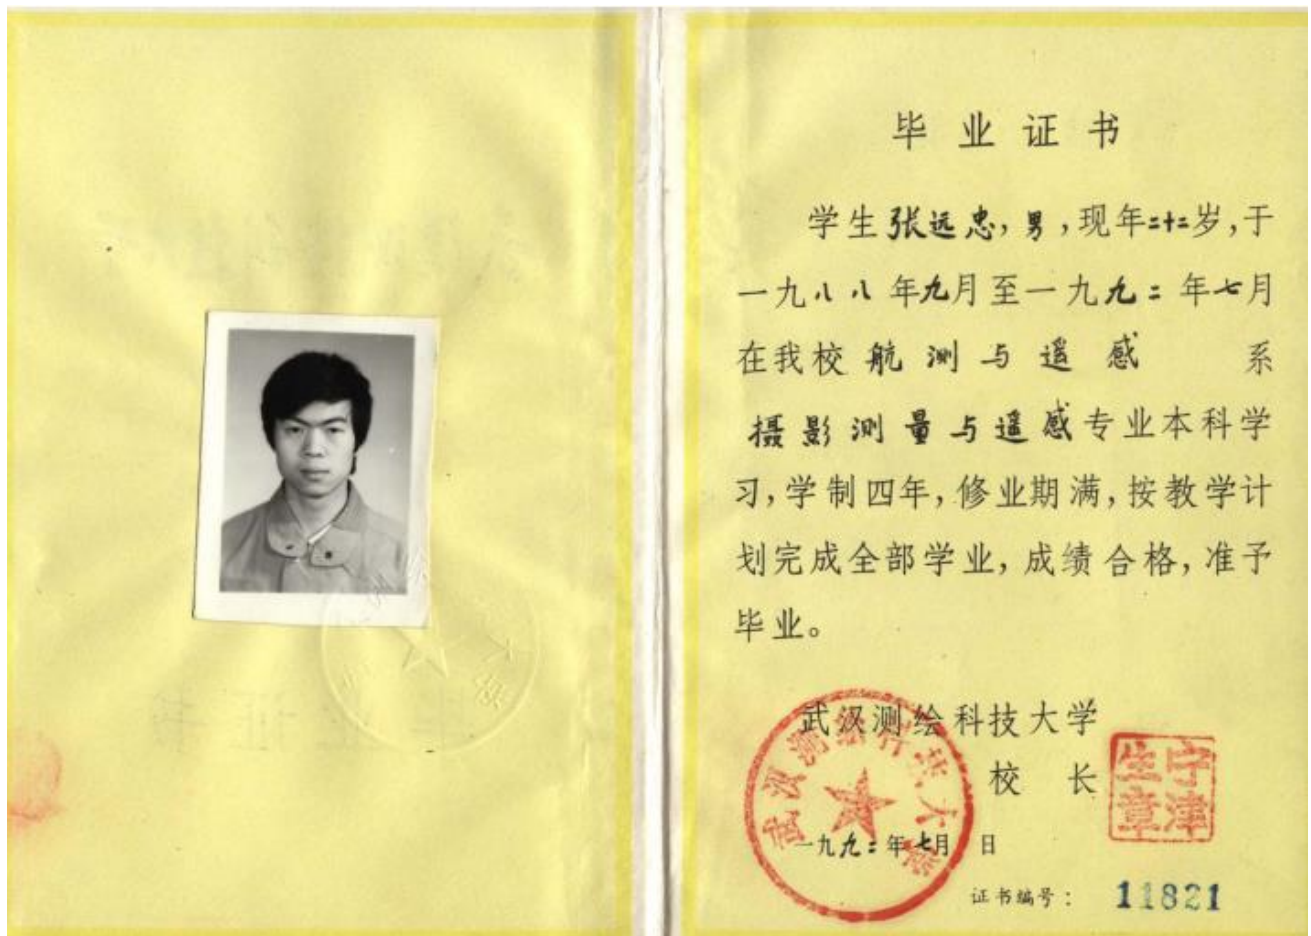 毕业证书
学生张远忠,男,现年二十二岁,于
一九八八年九月至一九九二年七月
在我校航测与遥感 系
摄影测量与遥感专业本科学
习,学制四年,修业期满,按教学计
划完成全部学业,成绩合格,准予
毕业。
武汉测绘科技大学
校长
宁津生章
武汉测绘科技大学
一九九二年七月 日
证书编号: 11821